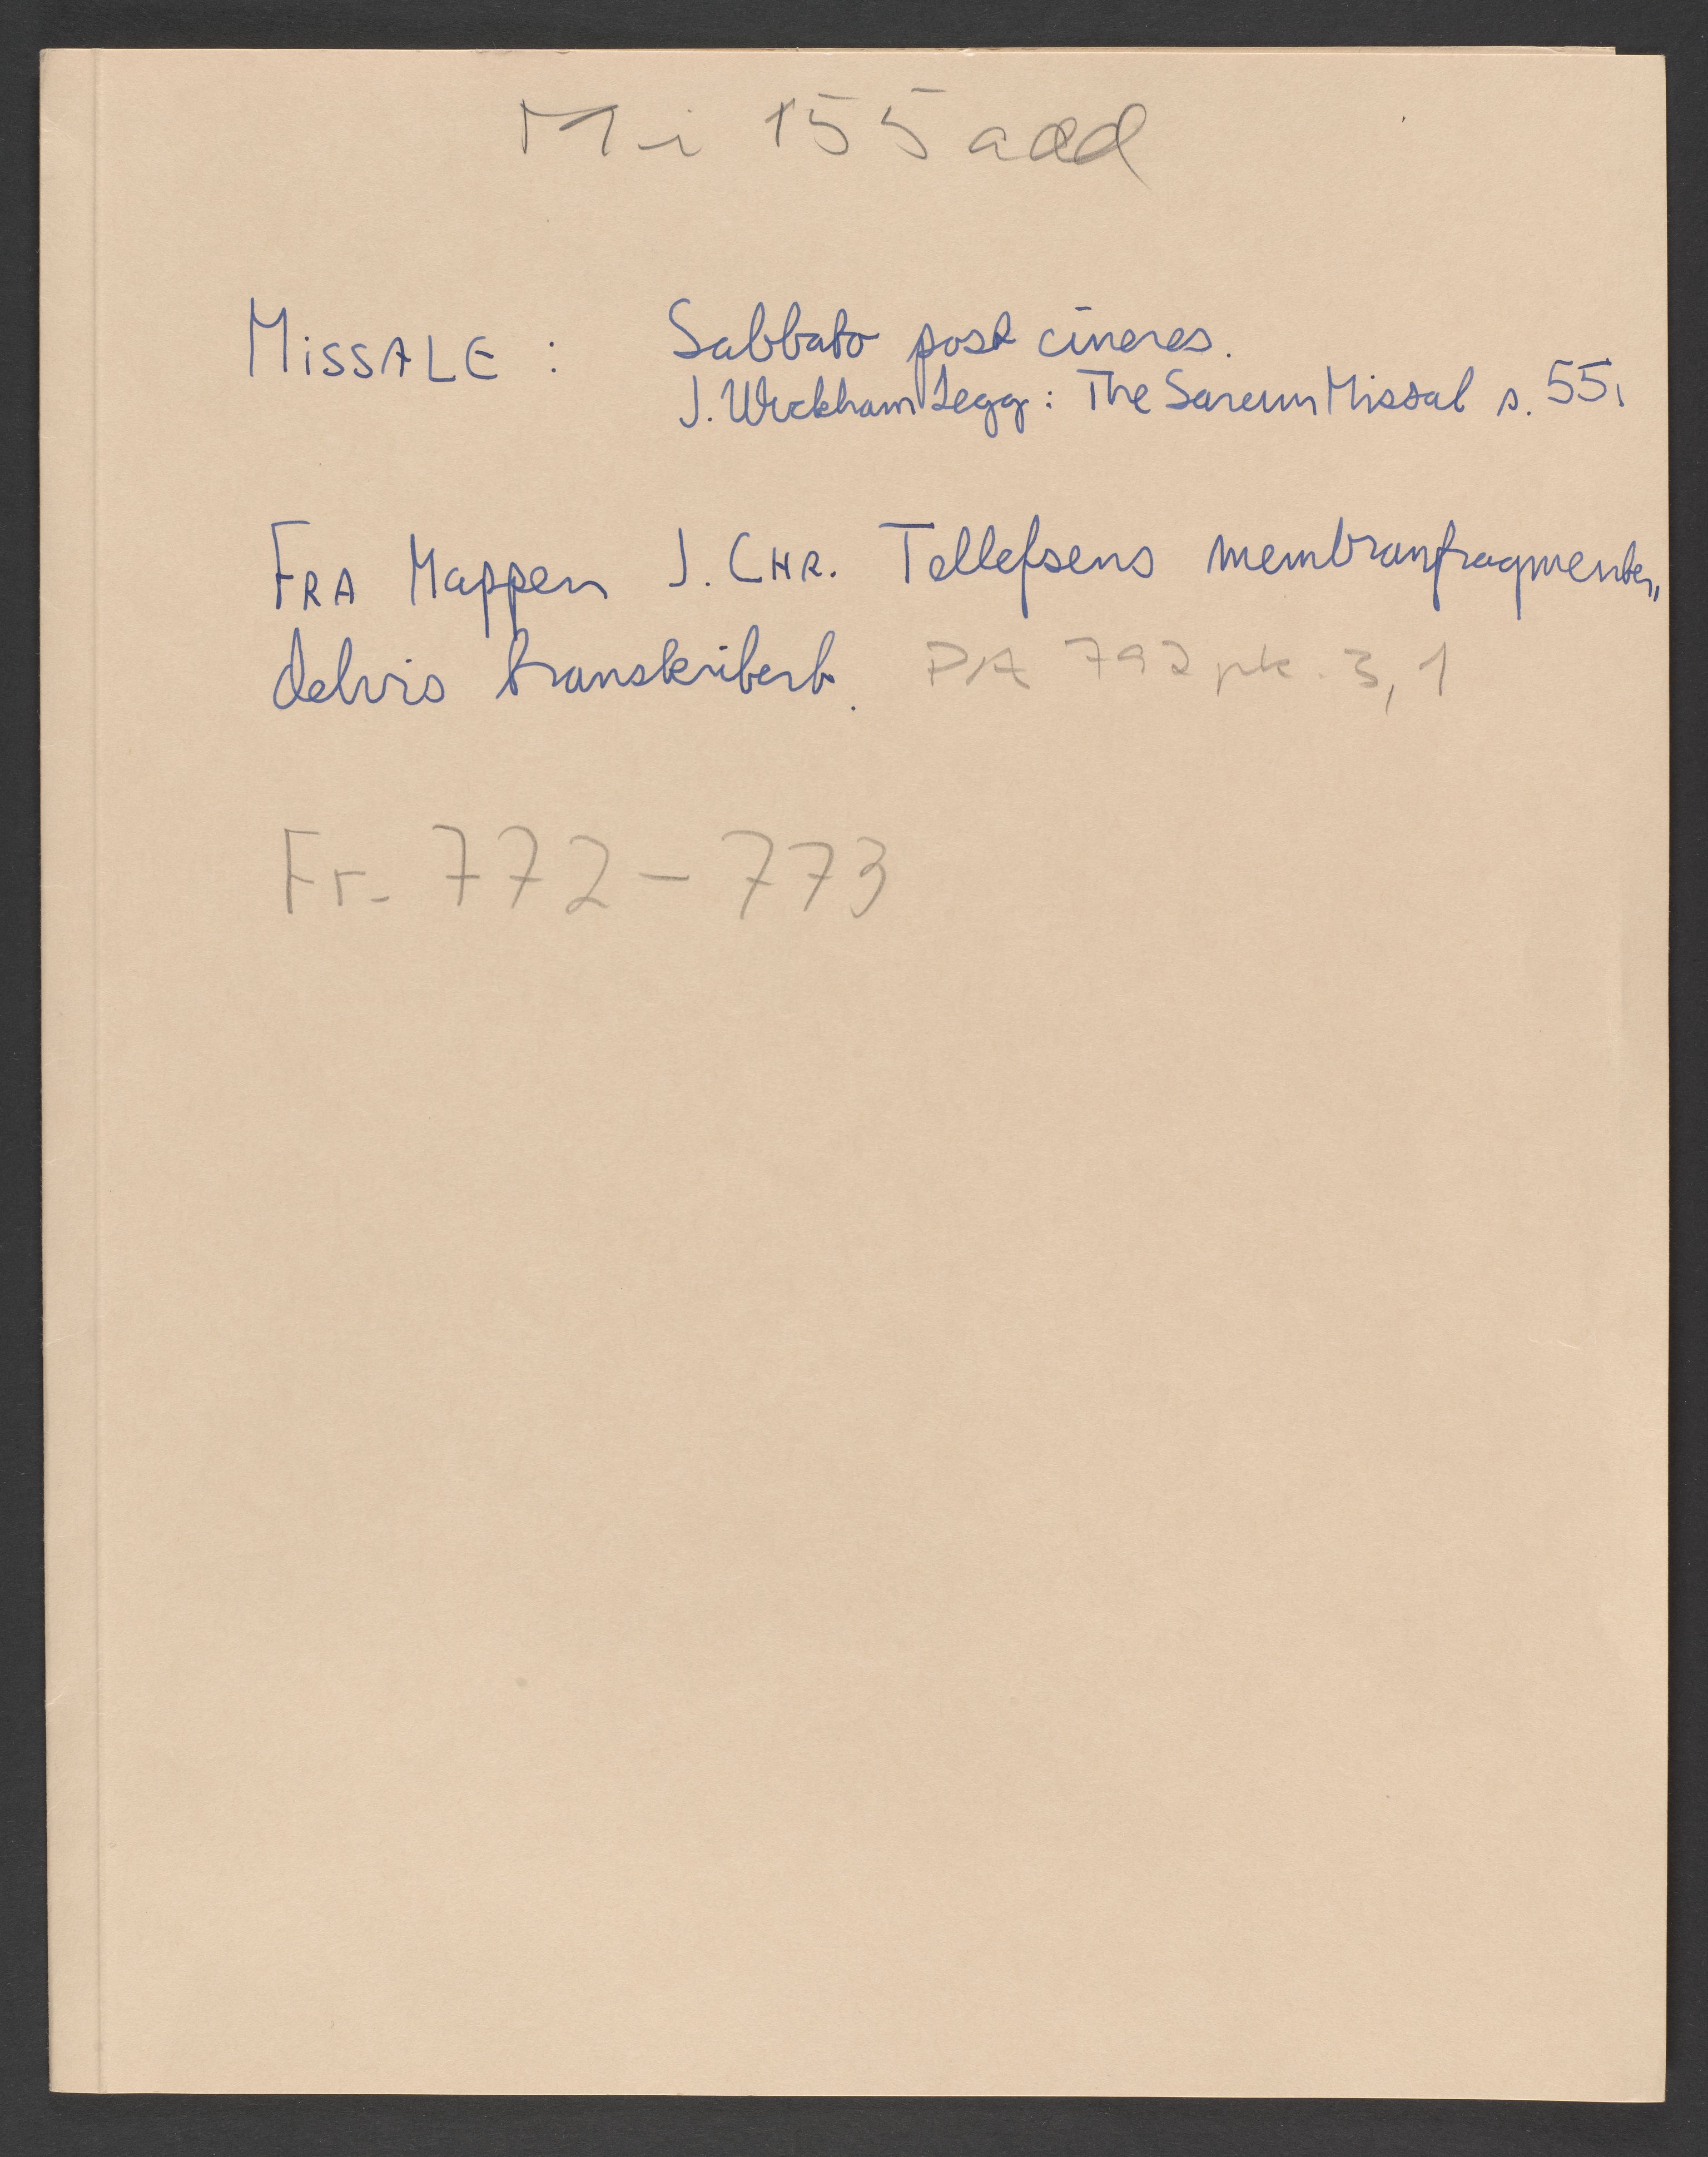 Mi 155 add
MiSSALE : Sabbato post cineres.
J. Wickham Legg: The Sarum Missal s. 55.
FRA Mappen J. CHR. Tellefsens membranfragmenter,
delvis transkribert. PA 792 pk. 3, 1
Fr. 772-773